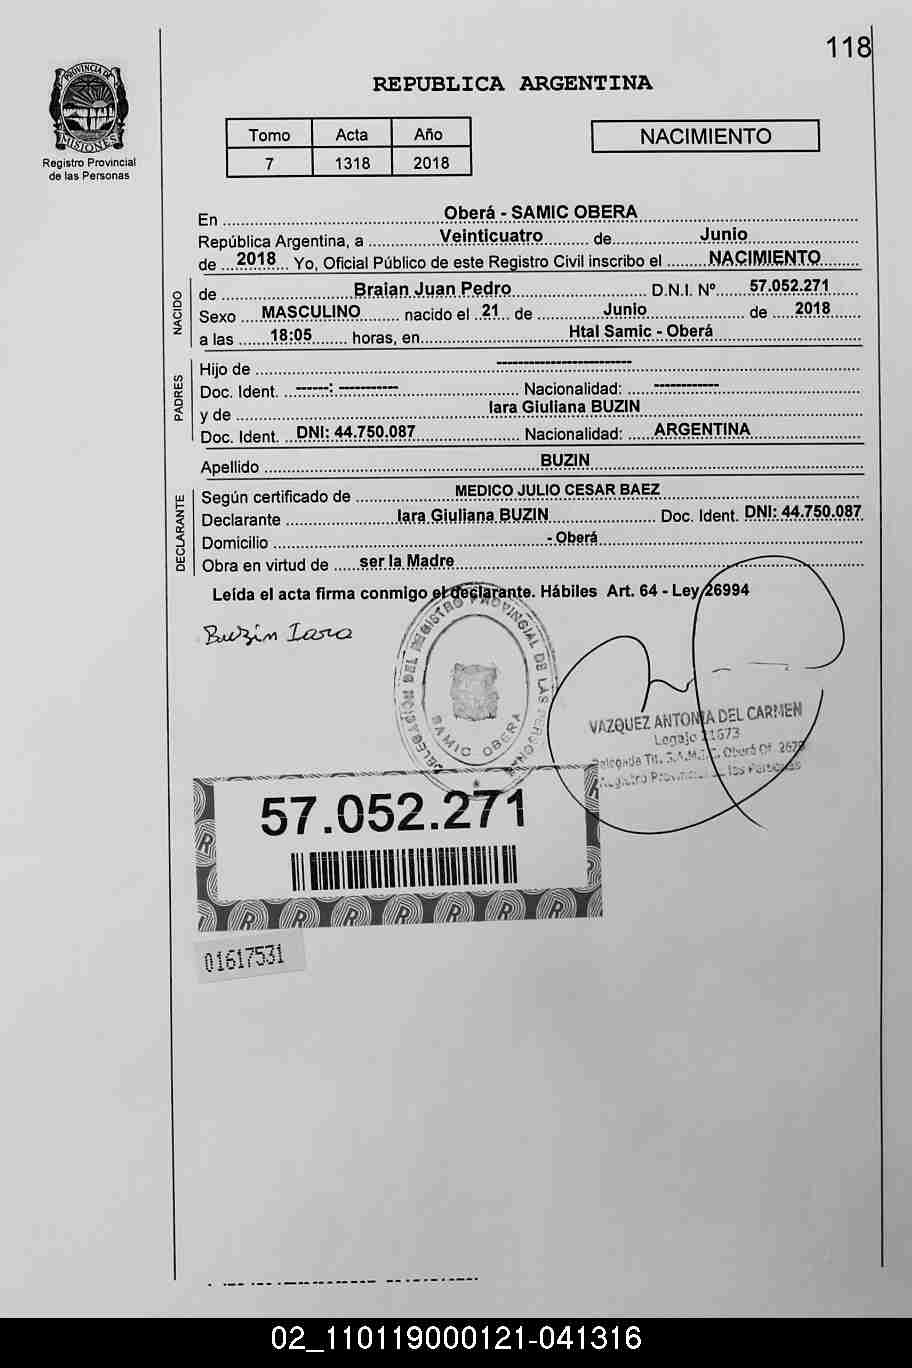 118
PROVINCIA DE
MISIONES
Registro Provincial
de las Personas
REPUBLICA ARGENTINA
Tomo Acta Año
7 1318 2018
NACIMIENTO
En Oberá - SAMIC OBERA
República Argentina, a Veinticuatro de Junio
de 2018 Yo, Oficial Público de este Registro Civil inscribo el NACIMIENTO
NACIDO
de Braian Juan Pedro D.N.I. Nº 57.052.271
Sexo MASCULINO nacido el 21 de Junio de 2018
a las 18:05 horas, en Htal Samic - Oberá
PADRES
Hijo de --------------------------
Doc. Ident. ------: ----------- Nacionalidad: ------------
y de Iara Giuliana BUZIN
Doc. Ident. DNI: 44.750.087 Nacionalidad: ARGENTINA
Apellido BUZIN
DECLARANTE
Según certificado de MEDICO JULIO CESAR BAEZ
Declarante Iara Giuliana BUZIN Doc. Ident. DNI: 44.750.087
Domicilio - Oberá
Obra en virtud de ser la Madre
Leída el acta firma conmigo el declarante. Hábiles Art. 64 - Ley 26994
Buzin Iara
DELEGACION DEL REGISTRO PROVINCIAL DE LAS PERSONAS
SAMIC OBERA
VAZQUEZ ANTONIA DEL CARMEN
Legajo 21673
Delegada Tit. S.A.M.I.C. Oberá Of. 2673
Registro Provincial de las Personas
57.052.271
R R R R R R R R R
01617531
02_110119000121-041316